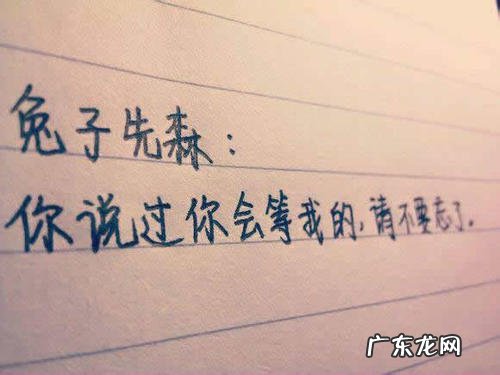 兔子先森：
你说过你会等我的,请不要忘了.
广东龙网